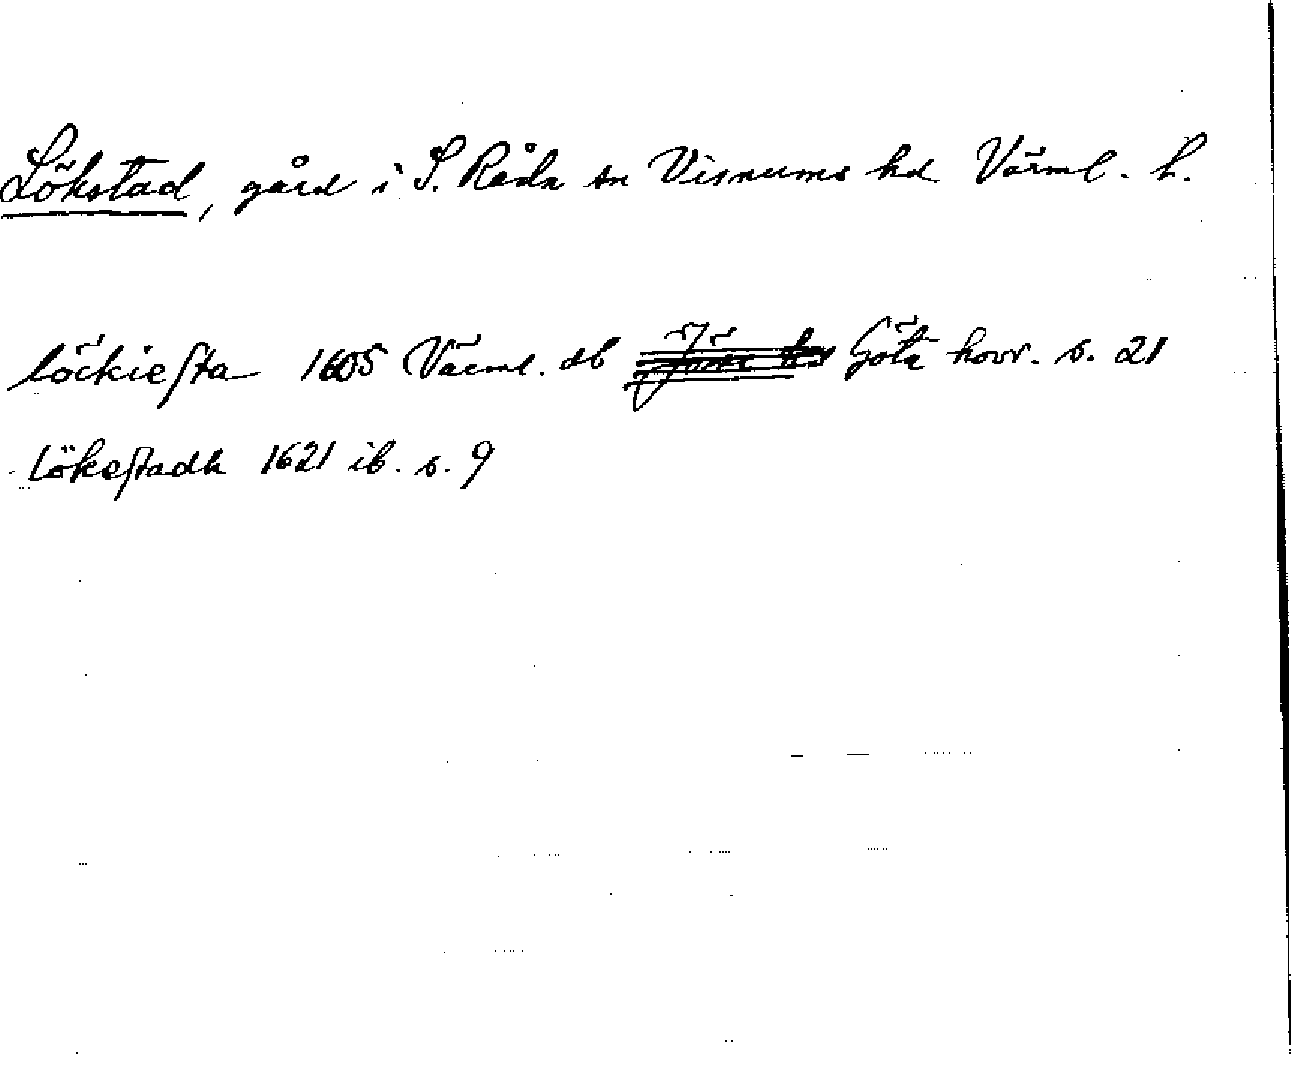 Lökstad, gård i S. Råda sn Visnums hd Värml. l.
löckiesta 1605 Värml. db Göta hovr. s. 21
lökestadh 1621 ib. s. 9